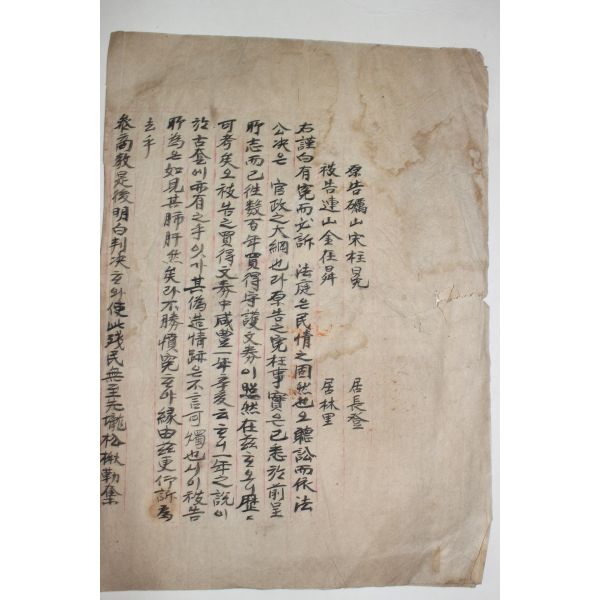 原告礪山宋柱晃 居長登
被告連山金在昇 居林里
右謹白有寃而必訴 法庭은民情之固然也오聽訟而依法
公决은 官政之大綱也라原告之寃枉事實은已悉於前呈
所志而已徃数百年買得守護文券이照然在玆이온니歷歷
可考矣오被告之買得文券中咸豊一年辛亥云一年之說이
於古套에亦有之乎잇가其僞造情跡은不言可燭也시이被告
所為은如見其肺肝然矣라不勝憤寃와緣由玆更仰訴為
去乎
叅商教是後明白判决使此殘民無至先壠松楸勒奪